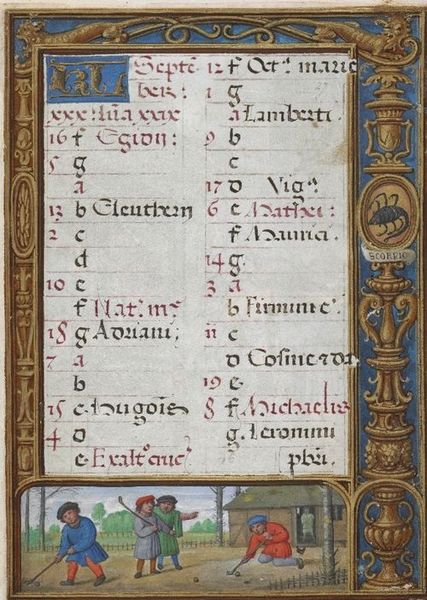 KL Septẽ
ber:
xxx: lũa xxix
16 f Egidii:
5 g
a
13 b Eleutherii
2 c
d
10 e
f Natᵃ. mᵉ:
18 g Adriani:
7 a
b
15 c Hugõis
4 d
e Exaltᵒ cruc̃
12 f Octᵃ. marie
1 g
a Lamberti
9 b
c
17 d Vigᵃ.
6 e Mathei:
f Maurici:
14 g
3 a
b Firmini e:
11 c
d Cosme ⁊ da
19 e
8 f Michaelis
g Ieronimi
pbri.
SCORPIO